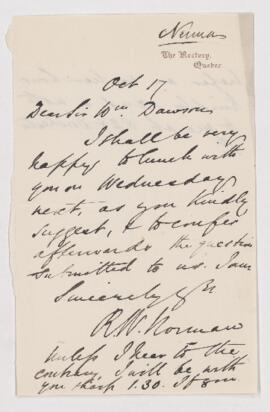 Norman
The Rectory,
Quebec
Oct 17
Dear Sir Wm Dawson
I shall be very
happy to lunch with
you on Wednesday
next, as you kindly
suggest, & to confer
afterwards the question
submitted to us. I am
Sincerely yrs
R. W. Norman
Unless I hear to the
contrary, I will be with
you sharp 1.30.